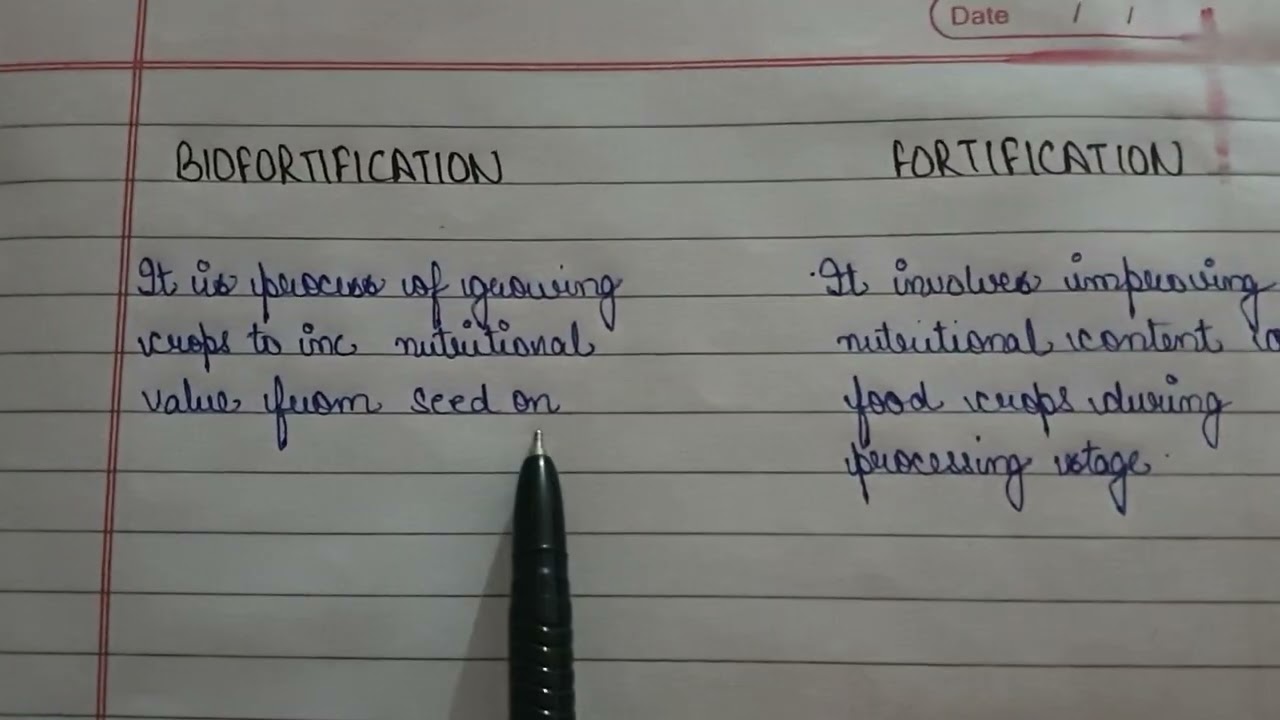 Date / /
BIOFORTIFICATION
It is process of growing
crops to inc nutritional
value from seed on
FORTIFICATION
·It involves improving
nutritional content
food crops during
processing stage.